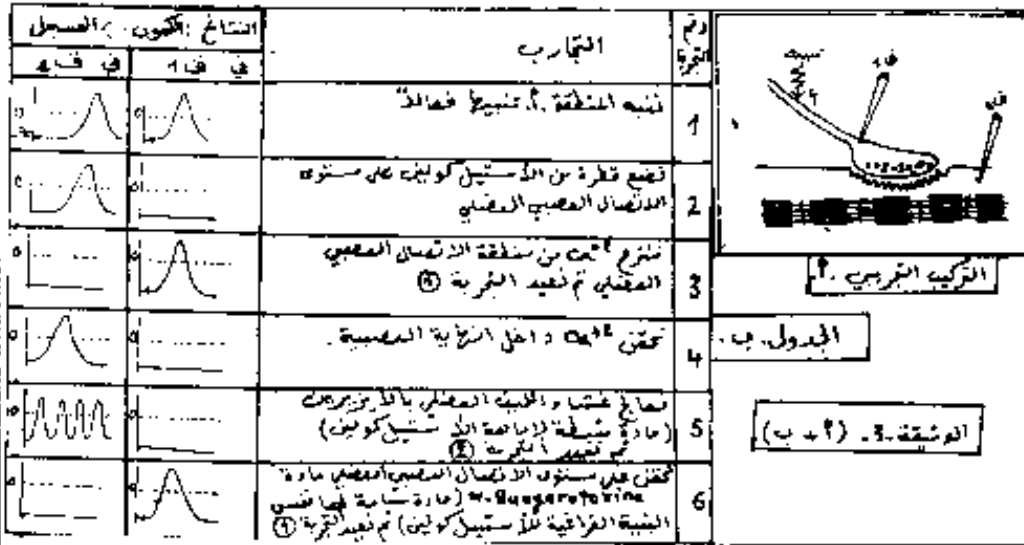 رقم التجربة
التجارب
النتائج : الكمون المسجل
في ف 1
في ف 2
1
ننبه المنطقة أ. تنبيها فعالا
2
نضع قطرة من الأستيل كولين على مستوى
الاتصال العصبي العضلي
3
ننزع Ca²⁺ من منطقة الاتصال العصبي
العضلي ثم نعيد التجربة ①
4
نحقن Ca⁺² داخل النهاية العصبية.
5
نعالج غشاء الليف العضلي بالايزيرين
(مادة مثبطة لاماهة الأستيل كولين)
ثم نعيد التجربة ②
6
نحقن على مستوى الاتصال العصبي العضلي مادة
α.Bungarotoxine (مادة سامة لها نفس
البنية الفراغية للأستيل كولين) ثم نعيد التجربة ①
تنبيه
أ
ف1
ف2
التركيب التجريبي .أ.
الجدول. ب.
الوثيقة.3. (أ + ب)